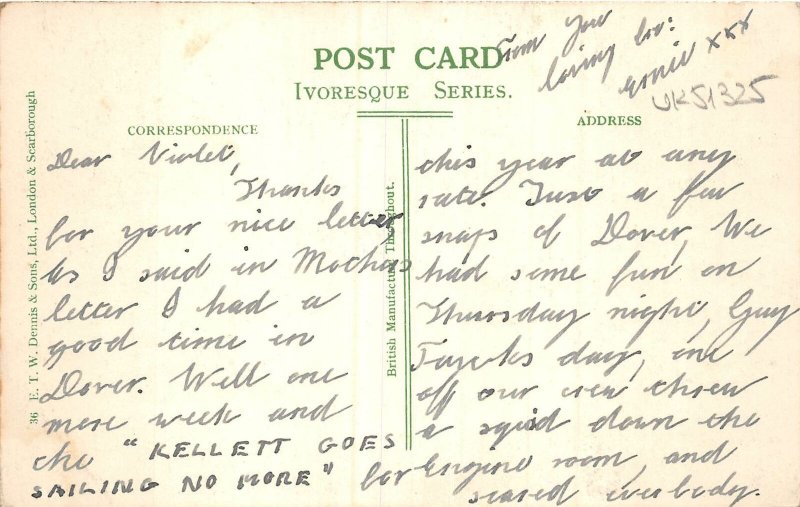 POST CARD
IVORESQUE SERIES.
CORRESPONDENCE
ADDRESS
36 E. T. W. Dennis & Sons, Ltd., London & Scarborough
British Manufacture Throughout.
Dear Violet,
Thanks
for your nice letter
As I said in Mothers
letter I had a
good time in
Dover. Well one
more week and
the "KELLETT GOES
SAILING NO MORE" for
this year at any
rate. Just a few
snaps of Dover. We
had some fun on
Thursday night, Guy
Fawks day, one
off our crew threw
a sqid down the
Engine room, and
scared everbody.
From your
loving bro:
Ernie xxx
UK51325